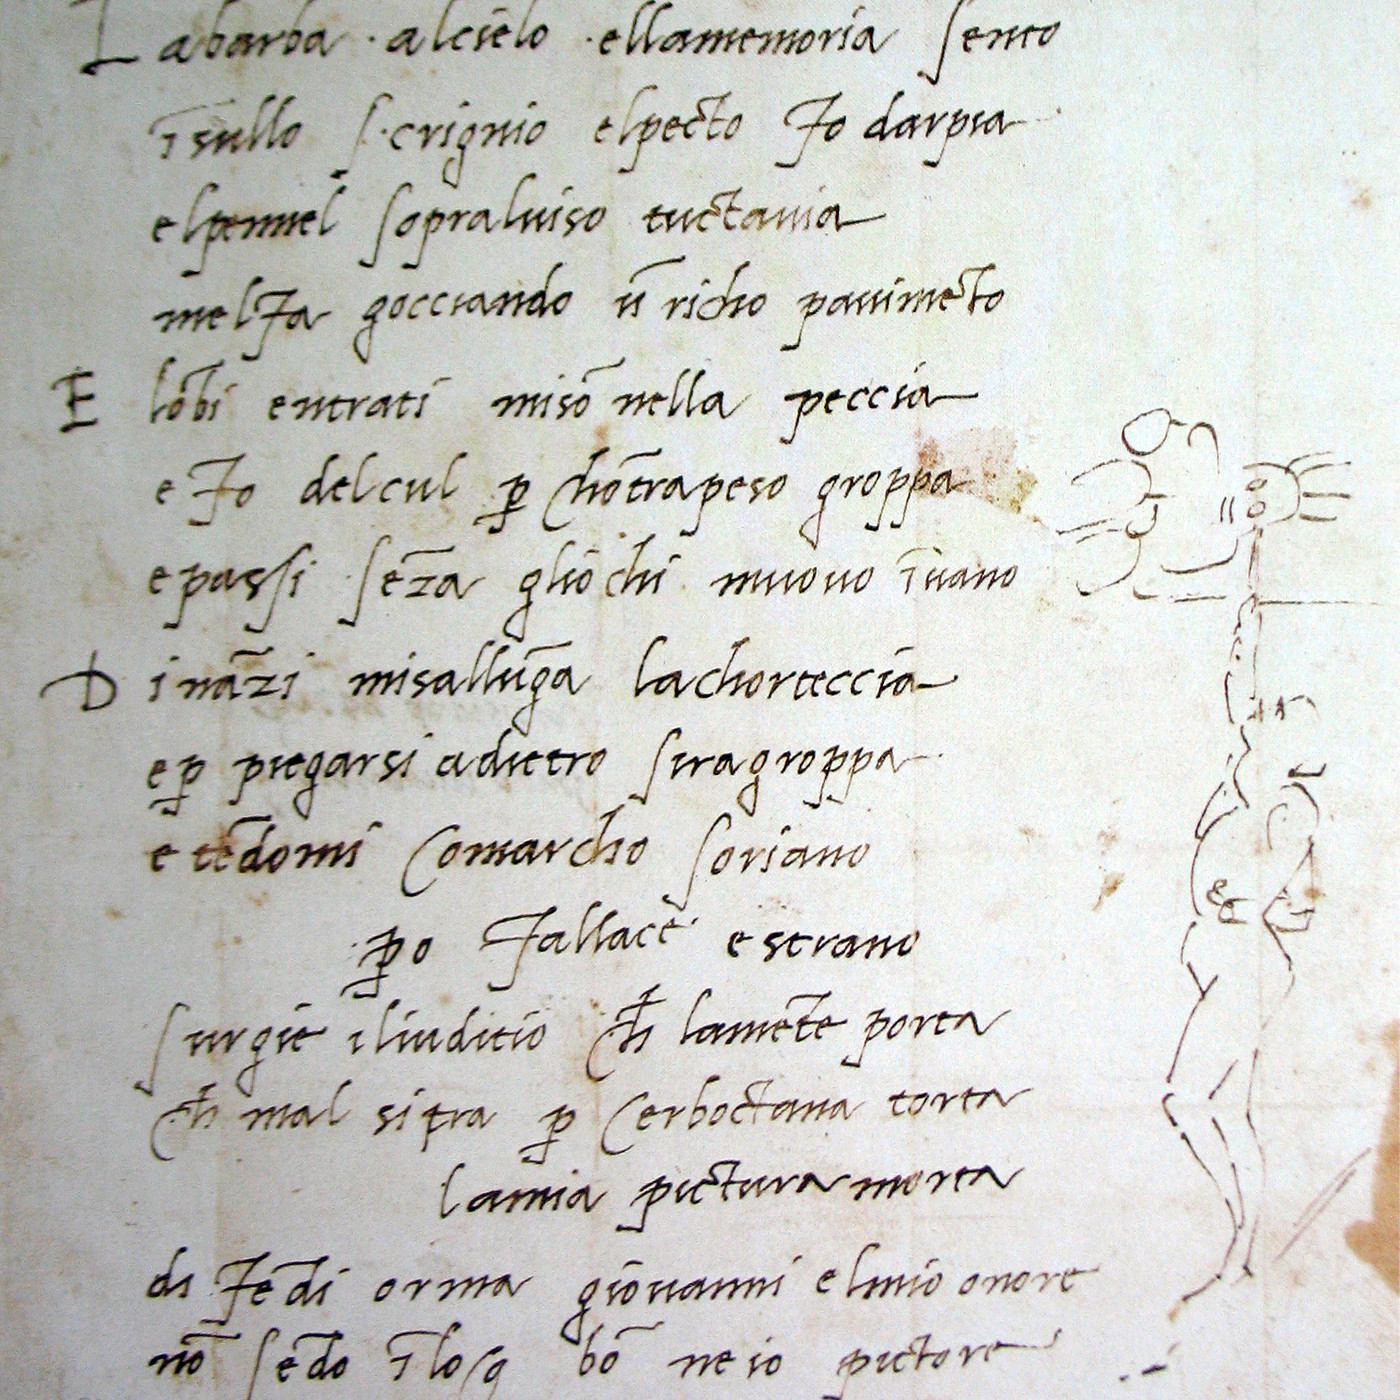 La barba · alcielo · ellamemoria sento
ī sullo s·crignio elpecto fo darpia
elpennel sopraluiso tuctauia
melfa gocciando ū richo pauimēto
E lōbi entrati misō nella peccia
e fo delcul p̱ chōtrapeso groppa
e passi sēza gliochi muouo īuano
D ināzi misallūga lachorteccia
ep̱ piegarsi adietro siragroppa
e tēdomi comarcho soriano
p̱o fallace e strano
surgie iliuditio ch̄ lamēte porta
ch̄ mal si tra p̱ cerboctana torta
lamia pictura morta
di fēdi orma giouanni elmio onore
nō sēdo ī loco bō ne io pictore